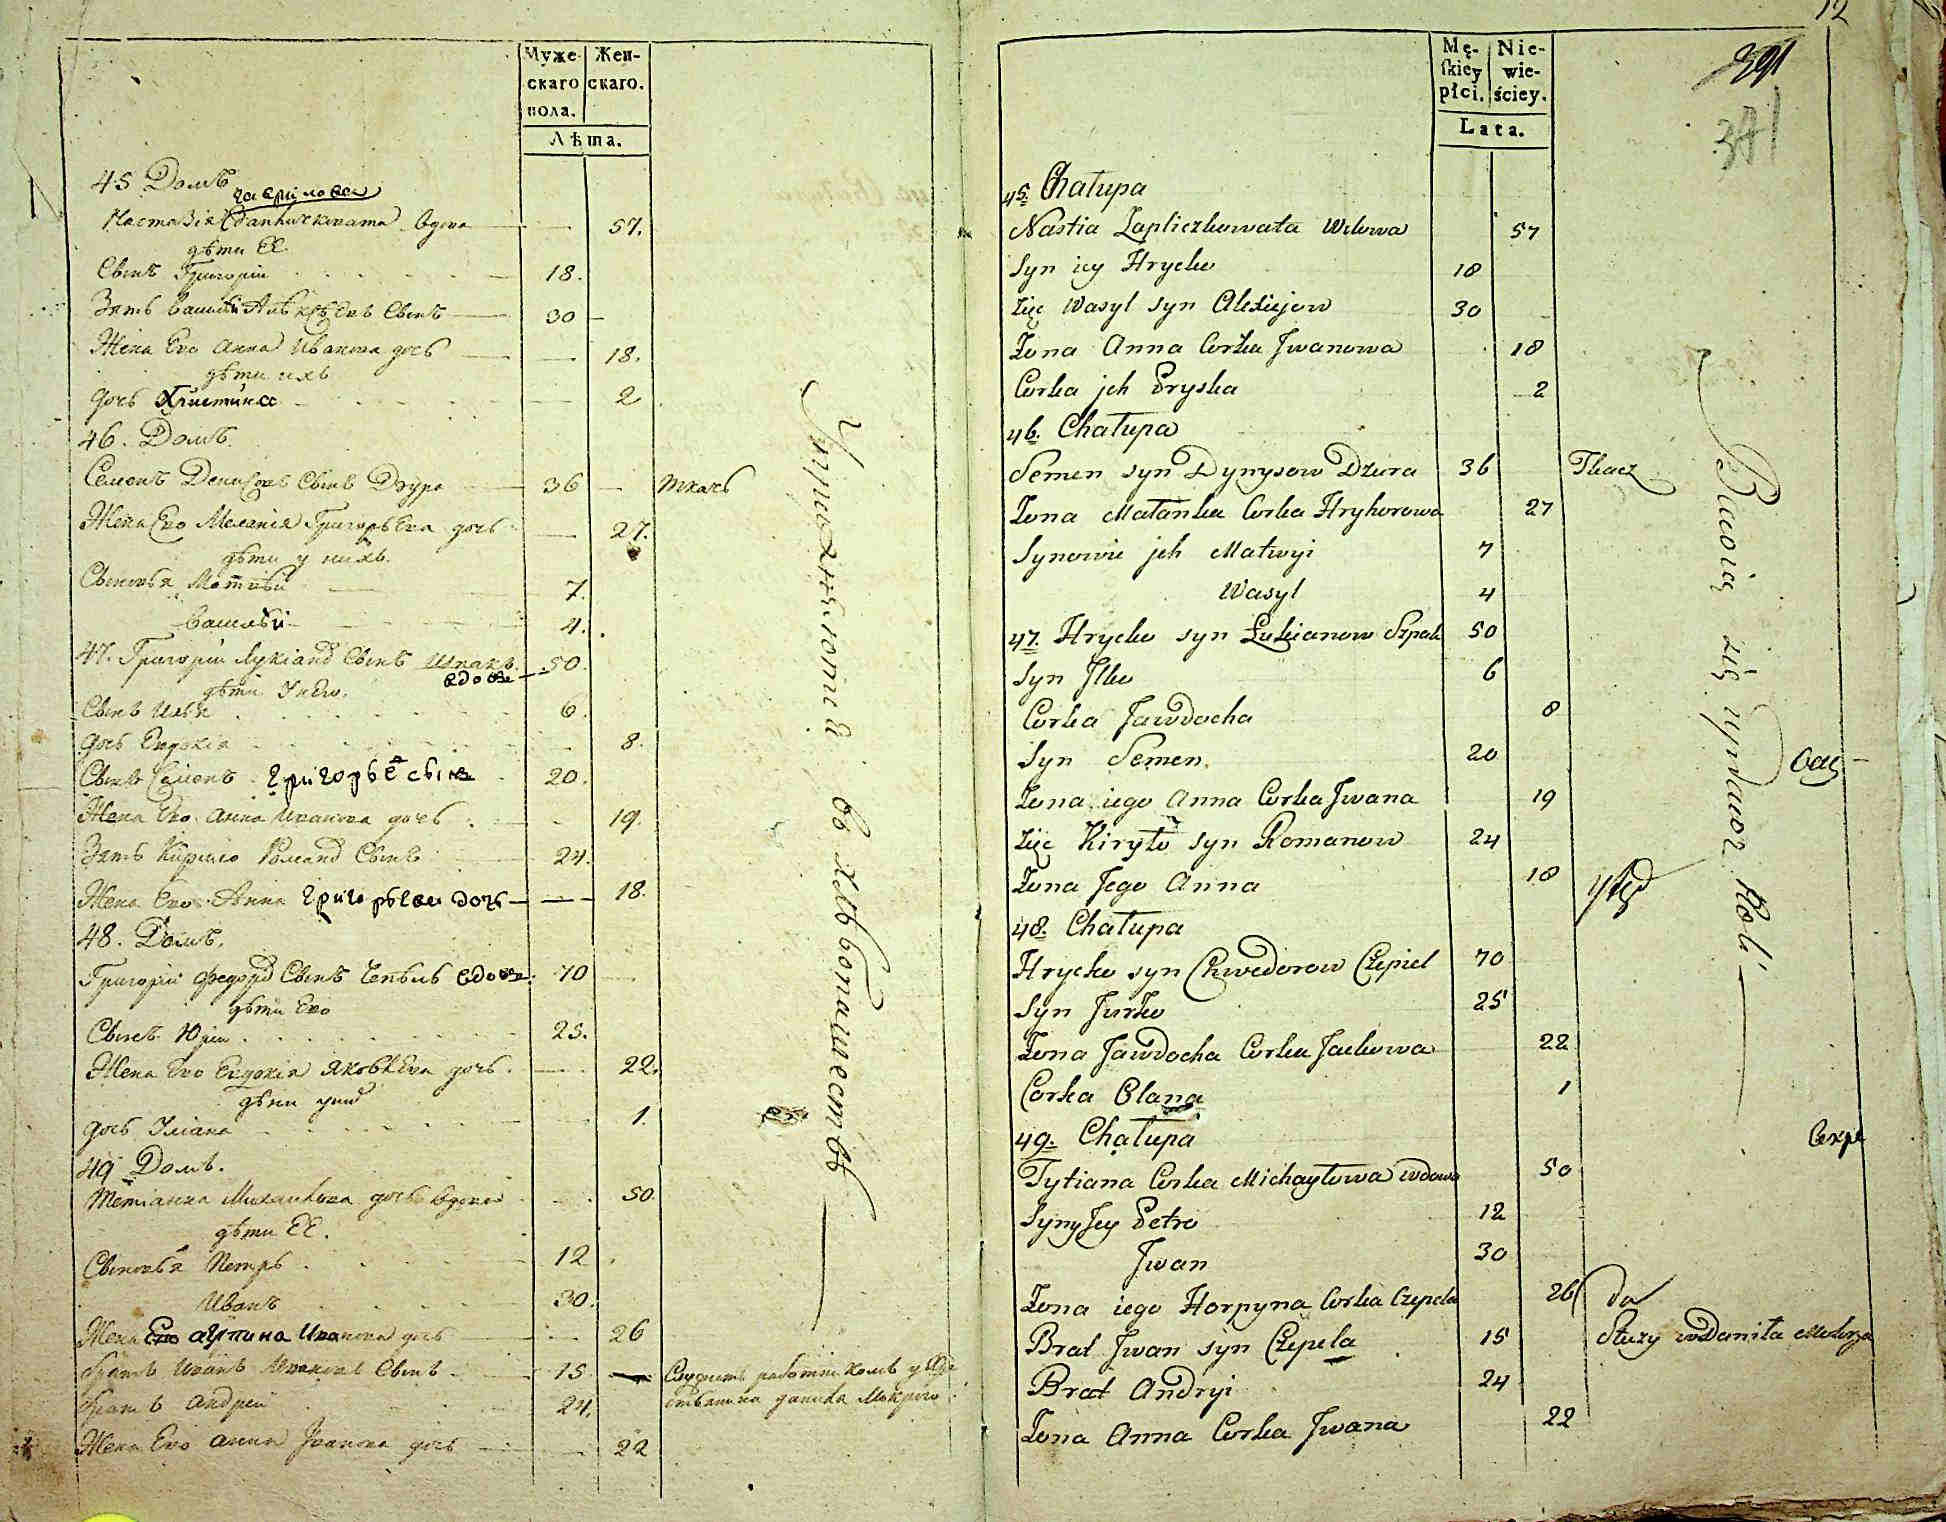 Муже-
скаго
пола.
Жен-
скаго.
Лѣта.
45 Домъ
гаврілова
Настазія вдова 57.
дѣти Ее
Сынъ Григорій 18.
Зять Василій Алексѣевъ Сынъ 30
Жена Его Анна Иванова дочь 18.
дѣти ихъ
дочь Христина 2
46. Домъ
Семенъ Денисовъ Сынъ Дзура 36 ткачъ
Жена Его Меланія Григорьева дочь 27.
дѣти у нихъ.
Сыновья Матвѣй 7.
Василѣй 4.
47. Григорій Лукіановъ Сынъ Шпакъ 50.
вдовъ
дѣти У него.
Сынъ Илья 6.
дочь Евдокія 8.
Сынъ Семенъ григорьев сынъ 20.
Жена Его Анна Иванова дочь 19.
Зять Кирило Романов Сынъ 24.
Жена Его Анна григорьева дочь 18.
48. Домъ.
Григорій Федоров Сынъ Чепѣль вдовъ. 70
дѣти Его
Сынъ Юрій 25.
Жена Его Евдокія Яковлева дочь. 22.
дѣти
дочь Уліана 1.
49 Домъ.
Тетіанна Михайлова дочь вдова 50.
дѣти ЕЕ.
Сыновья Петръ 12
Иванъ 30.
Жена Его агупина Иванова дочь 26
братъ Иванъ Сынъ 15. Служитъ работникомъ у
данила Мокрого
братъ Андрей 24.
Жена Его анна Іванова дочь 22
Упражняются въ хлѣбопашествѣ
12
391
341
Mę-
skiey
płci.
Nie-
wie-
ściey.
Lata.
45. Chałupa
Nastia Zapliczkowata Wdowa 57
Syn iey Hryćko 18
Zięć Wasyl syn Alexiejow 30
Żona Anna Corka Jwanowa 18
Corka jch Pryska 2
46. Chałupa
Semen syn Dynysow Dziura 36 Tkacz
Żona Małanka Corka Hryhorowa 27
Synowie jch Matwyi 7
Wasyl 4
47. Hrycko syn Łukianow Szpak 50
Syn Jlko 6
Corka Jawdocha 8
Syn Semen 20
Żona iego Anna Corka Jwana 19
Zięć Kiryło syn Romanow 24
Żona Jego Anna 18
48. Chałupa
Hrycko syn Chwedorow Czepiel 70
Syn Jurko 25
Żona Jawdocha Corka Jackowa 22
Corka Olana 1
49. Chałupa
Tytiana Corka Michayłowa wdowa 50
Syny Jey Petro 12
Jwan 30
Żona iego Horpyna Corka Czepela 26
Brat Jwan syn Czepela 15 Służy u Daniła Mokrza
Brat Andryi 24
Żona Anna Corka Jwana 22
Bawią się uprawą Roli